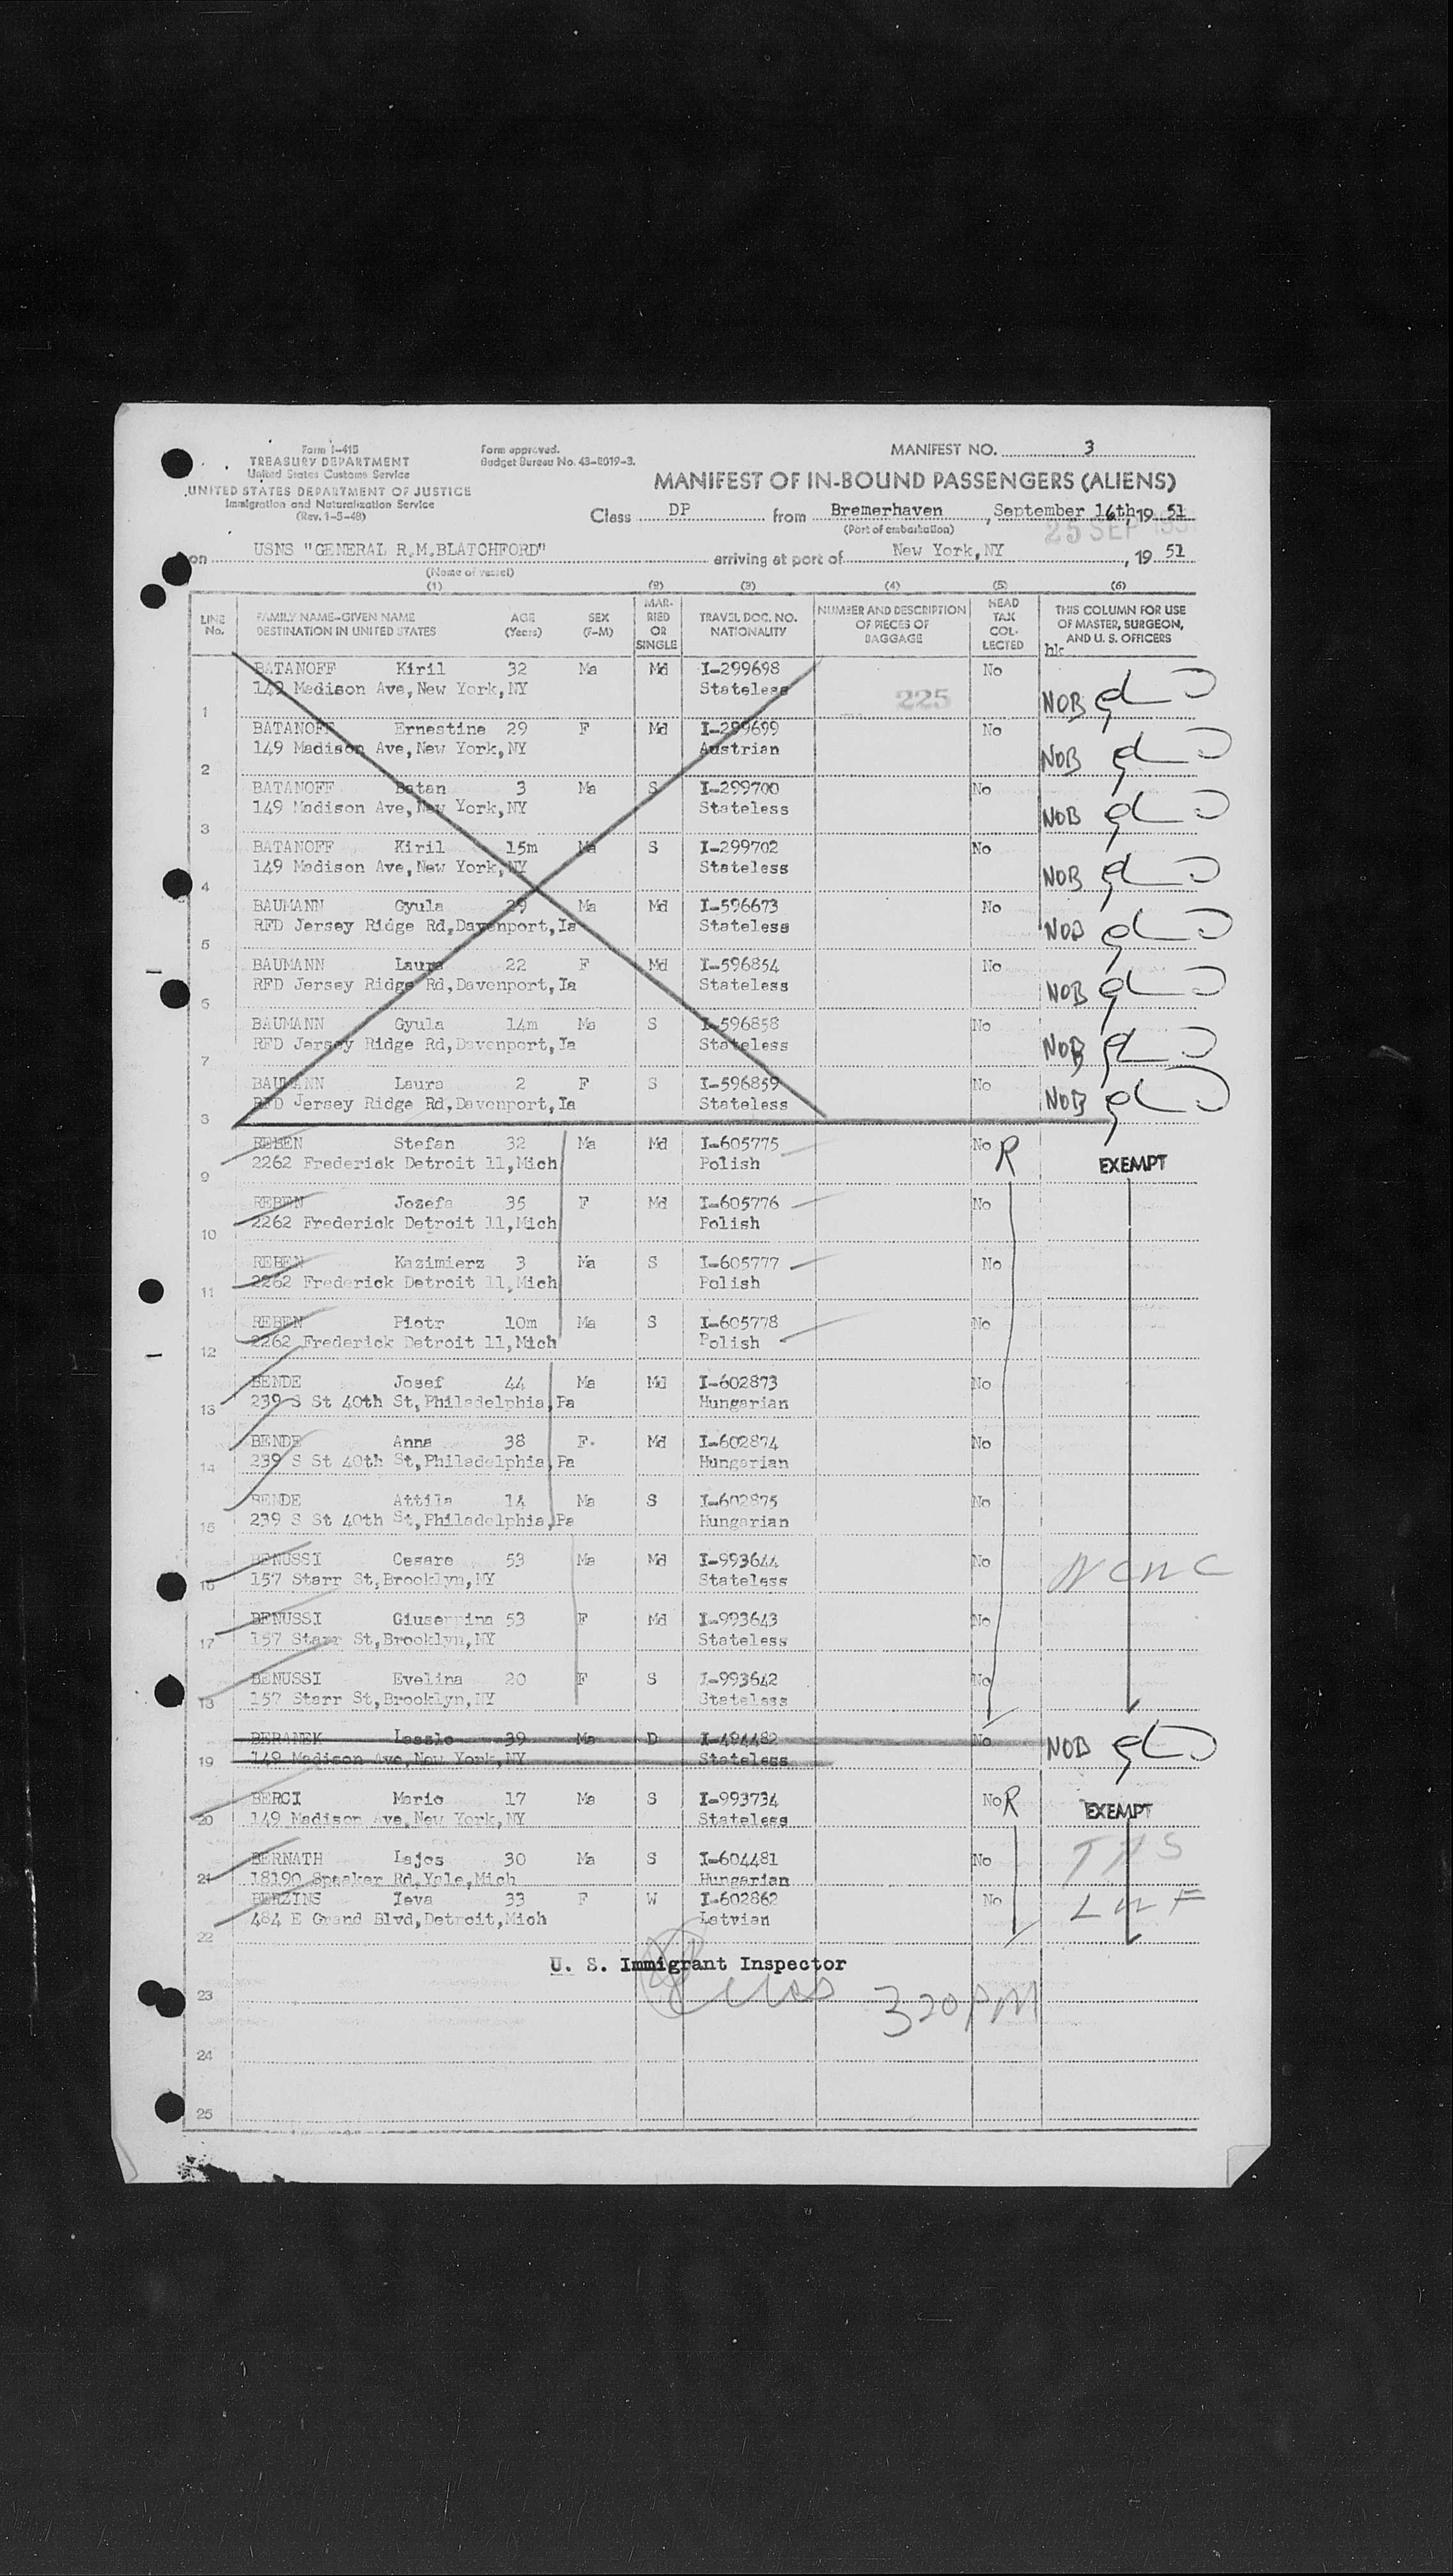 Form I-415
TREASURY DEPARTMENT
United States Customs Service
UNITED STATES DEPARTMENT OF JUSTICE
Immigration and Naturalization Service
(Rev. 1-5-48)
Form approved.
Budget Bureau No. 43-R019-3.
MANIFEST NO. 3
MANIFEST OF IN-BOUND PASSENGERS (ALIENS)
Class DP from Bremerhaven, September 16th, 19 51
(Port of embarkation)
25 SEP 1951
on USNS "GENERAL R.M.BLATCHFORD" arriving at port of New York,NY, 19 51
(Name of vessel)
(1) (2) (3) (4) (5) (6)
LINE No. FAMILY NAME-GIVEN NAME DESTINATION IN UNITED STATES AGE (Years) SEX (F-M) MARRIED OR SINGLE TRAVEL DOC. NO. NATIONALITY NUMBER AND DESCRIPTION OF PIECES OF BAGGAGE HEAD TAX COLLECTED THIS COLUMN FOR USE OF MASTER, SURGEON, AND U. S. OFFICERS
hk
BATANOFF Kiril 32 Ma Md I-299698 No
149 Madison Ave,New York,NY Stateless 225
1 NOB
BATANOFF Ernestine 29 F Md I-299699 No
149 Madison Ave,New York,NY Austrian
2 NOB
BATANOFF Batan 3 Ma S I-299700 No
149 Madison Ave,New York,NY Stateless
3 NOB
BATANOFF Kiril 15m Ma S I-299702 No
149 Madison Ave,New York,NY Stateless
4 NOB
BAUMANN Gyula 29 Ma Md I-596673 No
RFD Jersey Ridge Rd,Davenport,Ia Stateless
5 NOB
BAUMANN Laura 22 F Md I-596854 No
RFD Jersey Ridge Rd,Davenport,Ia Stateless
6 NOB
BAUMANN Gyula 14m Ma S I-596858 No
RFD Jersey Ridge Rd,Davenport,Ia Stateless
7 NOB
BAUMANN Laura 2 F S I-596859 No
RFD Jersey Ridge Rd,Davenport,Ia Stateless
8 NOB
REBEN Stefan 32 Ma Md I-605775 No R
2262 Frederick Detroit 11,Mich Polish EXEMPT
9
REBEN Jozefa 35 F Md I-605776 No
2262 Frederick Detroit 11,Mich Polish
10
REBEN Kazimierz 3 Ma S I-605777 No
2262 Frederick Detroit 11,Mich Polish
11
REBEN Piotr 10m Ma S I-605778 No
2262 Frederick Detroit 11,Mich Polish
12
BENDE Josef 44 Ma Md I-602873 No
239 S St 40th St,Philadelphia,Pa Hungarian
13
BENDE Anna 38 F. Md I-602874 No
239 S St 40th St,Philadelphia,Pa Hungarian
14
BENDE Attila 14 Ma S I-602875 No
239 S St 40th St,Philadelphia,Pa Hungarian
15
BENUSSI Cesare 53 Ma Md I-993644 No
157 Starr St,Brooklyn,NY Stateless
16
BENUSSI Giuseppina 53 F Md I-993643 No
157 Starr St,Brooklyn,NY Stateless
17
BENUSSI Evelina 20 F S I-993642 No
157 Starr St,Brooklyn,NY Stateless
18
BERANEK Laszlo 39 Ma D I-484482 No NOB
149 Madison Ave,New York,NY Stateless
19
BERCI Mario 17 Ma S I-993734 No R EXEMPT
149 Madison Ave,New York,NY Stateless
20
BERNATH Lajos 30 Ma S I-604481 No
18190 Speaker Rd,Yale,Mich Hungarian
21
BERZINS Ieva 33 F W I-602862 No
484 E Grand Blvd,Detroit,Mich Latvian
22
U. S. Immigrant Inspector
23 320 PM
24
25